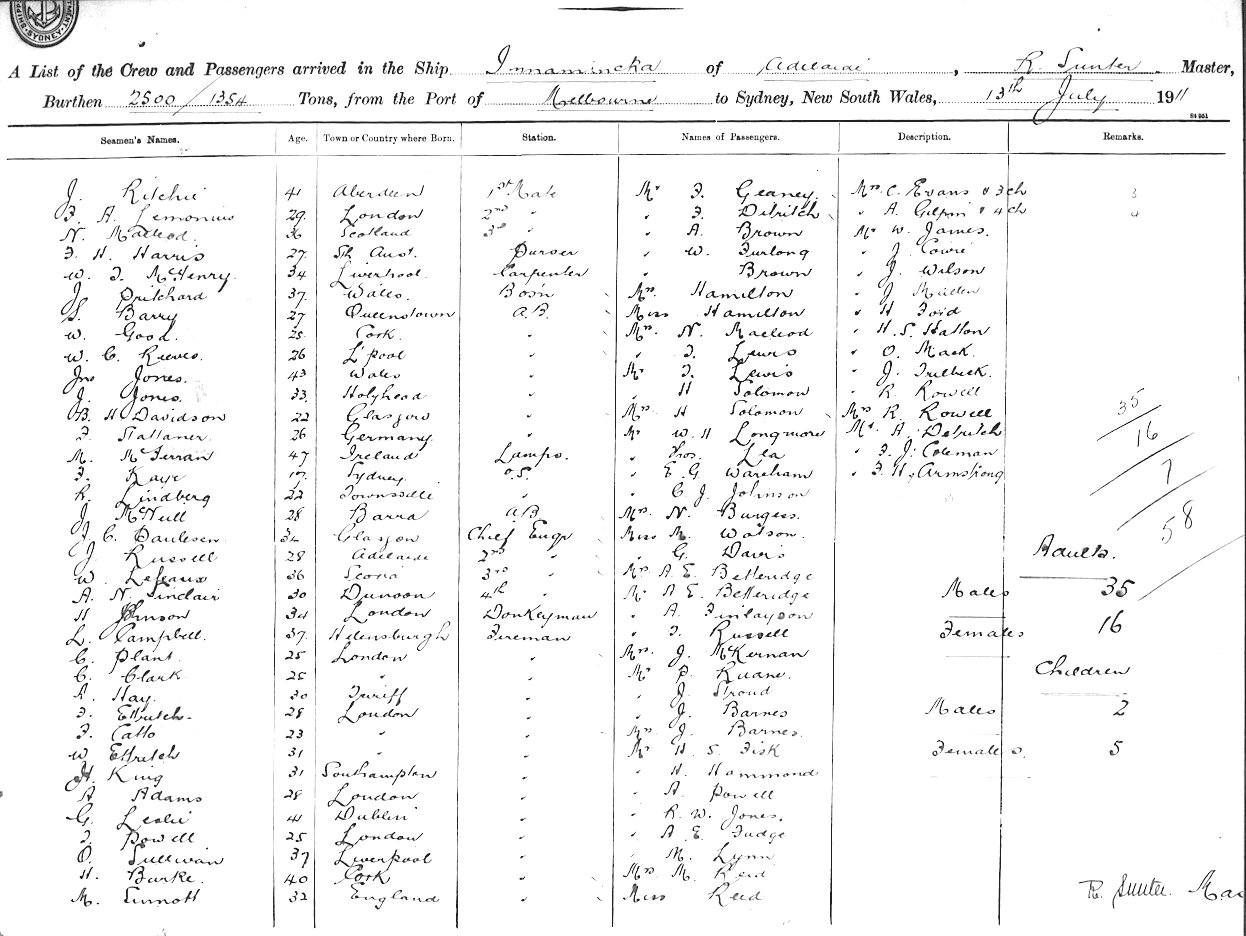 SHIPPING
SYDNEY
A List of the Crew and Passengers arrived in the Ship Innamincka of Adelaide, R. Sunter Master,
Burthen 2500/1354 Tons, from the Port of Melbourne to Sydney, New South Wales, 13th July 1911
St 951
Seamen's Names. Age. Town or Country where Born. Station. Names of Passengers. Description. Remarks.
J. Ritchie 41 Aberdeen 1st Mate Mr F. Geaney Mrs C. Evans & 3 ch 3
F. A. Lemonius 29 London 2nd " " F. Detritch " A. Gilpin & 4 ch 4
N. Macleod 36 Scotland 3rd " " A. Brown Mr W. James
F. H. Harris 27 Sth Aust. Purser " W. Furlong " J. Cowie
W. J. McHenry 34 Liverpool Carpenter " Brown " J. Wilson
J. Pritchard 37 Wales Bosn Mrs Hamilton " J. Mullen
S. Barry 27 Queenstown A.B. Miss Hamilton " H
W. Good 25 Cork " Mrs N. Macleod " H. S. Hatton
W. C. Reeves 26 L'pool " " F. Lewis " O. Mack
Jno Jones 43 Wales " Mr F. Lewis " J.
J. Jones 33 Holyhead " " H Solomon " R Rowell
B. H Davidson 22 Glasgow " Mrs H Solomon Mrs R. Rowell 35
F. 26 Germany " Mr W. H Longmore Mr A. Detritch 16
M. McFerran 47 Ireland Lamps. " Thos. Lea " F. J. Coleman
F. Kaye 17 Sydney O.S. " E. G. Wareham " F. H. Armstrong 7
R. Lindberg 22 Townsville " " C. J. Johnson
J. McNull 28 Barra A.B Mrs N. Burgess 58
J. C. Paulesen 34 Glasgow Chief Engr Miss M. Watson
J. Russell 28 Adelaide 2nd " " G. Davis Adults.
W. 36 3rd " Mrs A. E. Betteridge
A. N. Sinclair 30 Dunoon 4th " Mr A E. Betteridge Males 35
H Johnson 34 London Donkeyman " A. Finlayson
L. Campbell 37 Helensburgh Fireman " F. Russell Females 16
C. Plant 25 London " Mrs J. McKernan
C. Clark 25 " " Mr P. Ruane Children
A. Hay 30 Turiff " " J. Stroud
F. Ettritch 28 London " " J. Barnes Males 2
F. Catto 23 " " Mrs J. Barnes
W Ettritch 31 " " Mr H. S. Fisk Females 5
H. King 31 Southampton " " H. Hammond
A Adams 28 London " " A. Powell
G. Leslie 41 Dublin " " R. W. Jones
F. Powell 25 London " " A E. Judge
O. Sullivan 37 Liverpool " " M. Lynn
H. Burke 40 Cork " Mrs M. Reid
M. Sinnott 32 England " Miss Reid
R. Sunter.